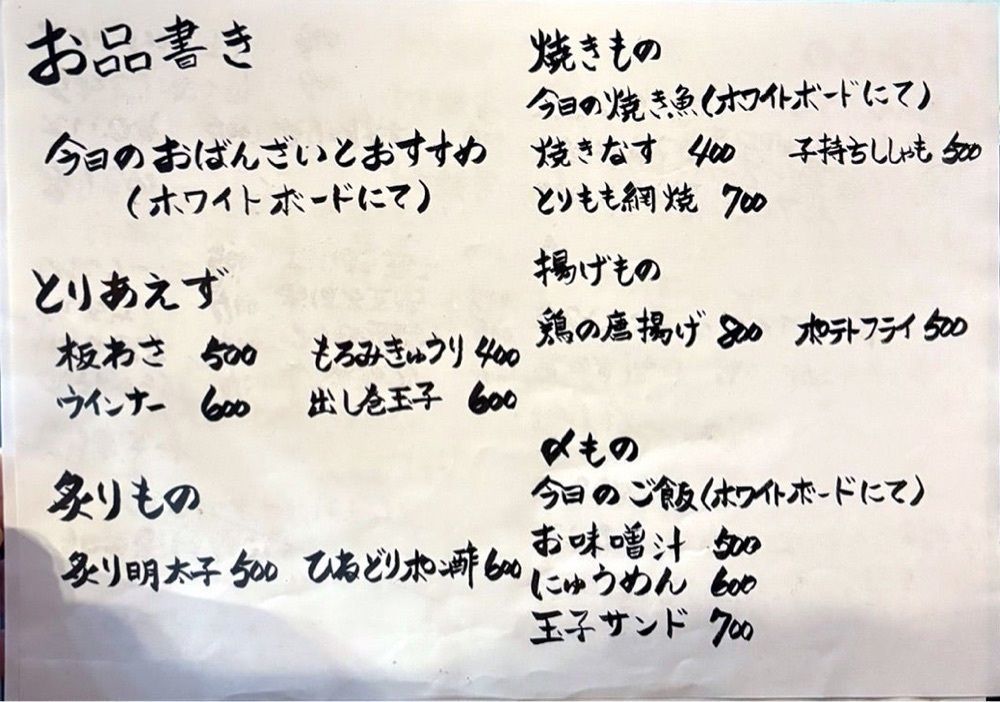 お品書き
今日のおばんざいとおすすめ
(ホワイトボードにて)
とりあえず
板わさ 500 もろみきゅうり 400
ウインナー 600 出し巻玉子 600
炙りもの
炙り明太子 500 ひねどりポン酢 600
焼きもの
今日の焼き魚(ホワイトボードにて)
焼きなす 400 子持ちししゃも 500
とりもも網焼 700
揚げもの
鶏の唐揚げ 800 ポテトフライ 500
〆もの
今日のご飯(ホワイトボードにて)
お味噌汁 500
にゅうめん 600
玉子サンド 700